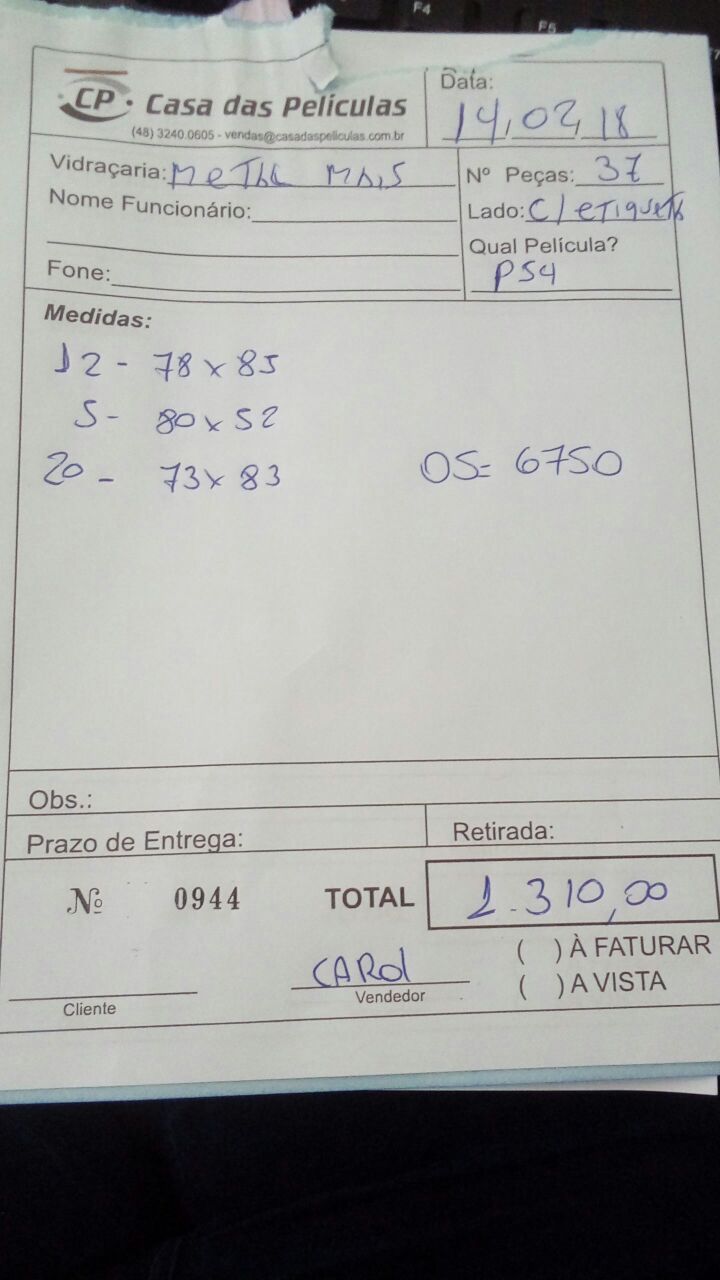 F4
F5
CP · Casa das Películas
(48) 3240.0605 - vendas@casadaspeliculas.com.br
Data: 14,02,18
Vidraçaria: METAL MAIS
Nome Funcionário:
Fone:
Nº Peças: 37
Lado: C/ ETIQUETA
Qual Película?
PS4
Medidas:
12 - 78 x 85
5 - 80 x 52
20 - 73 x 83
OS= 6750
Obs.:
Prazo de Entrega:
Retirada:
Nº 0944 TOTAL 1.310,00
( ) À FATURAR
CAROL
( ) A VISTA
Cliente
Vendedor